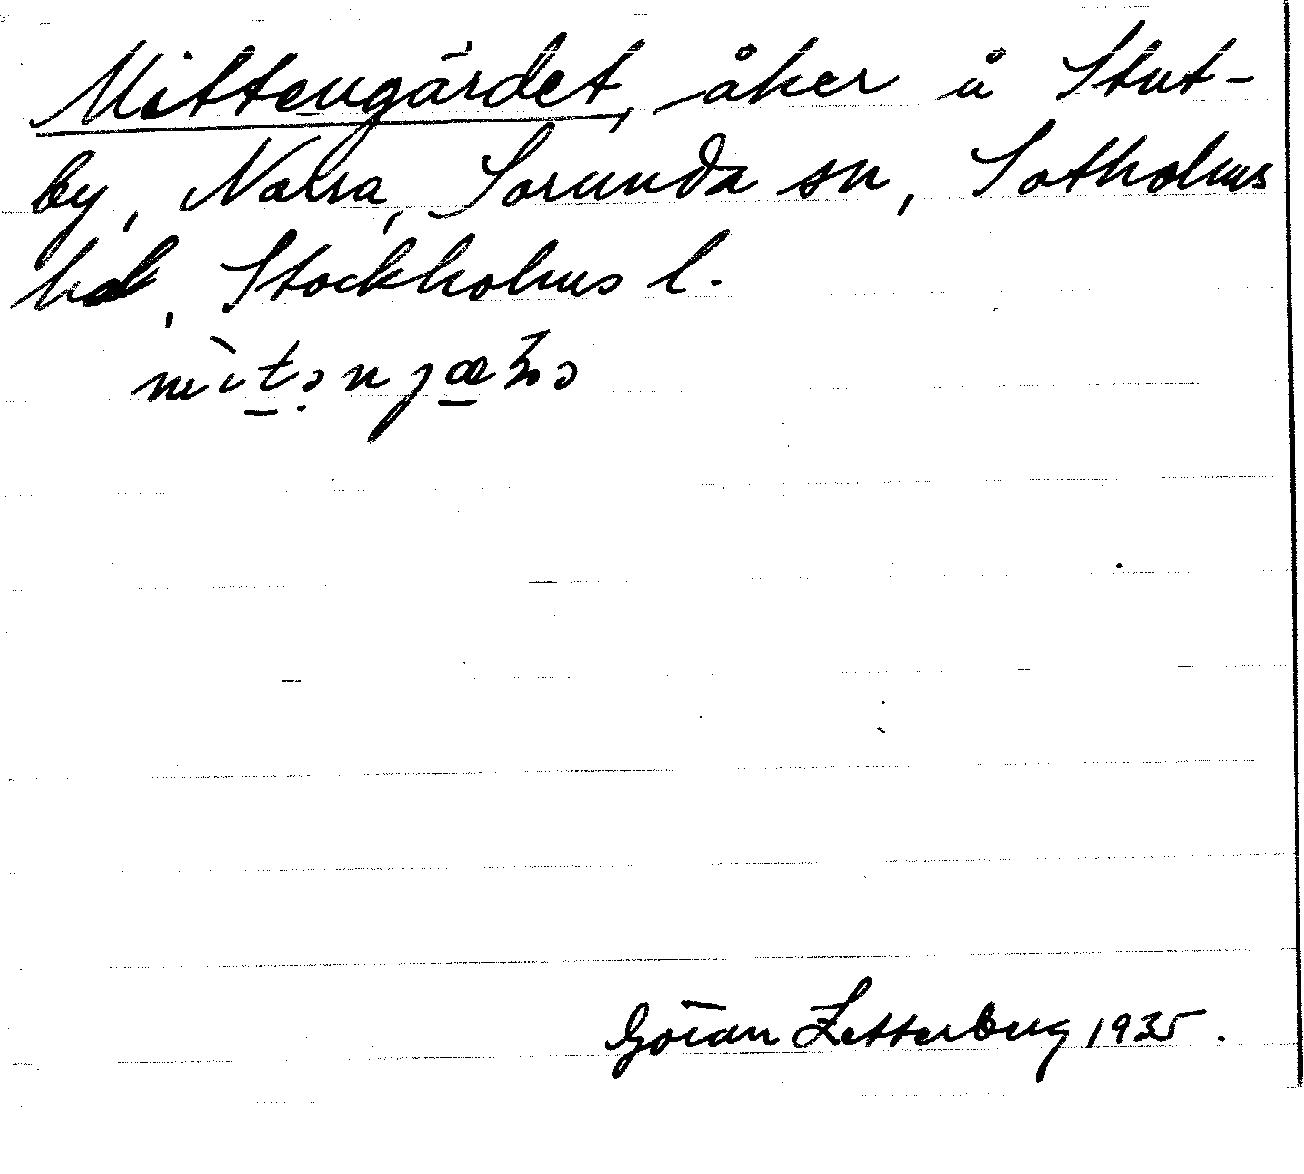 Mittengärdet, åker å Stut-
by, Norra, Sorunda sn, Sotholms
hd, Stockholms l.
Göran Zetterberg 1935.